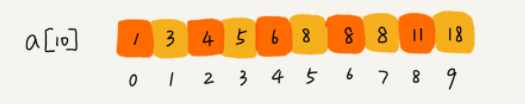 a[10] 1 3 4 5 6 8 8 8 11 18
0 1 2 3 4 5 6 7 8 9